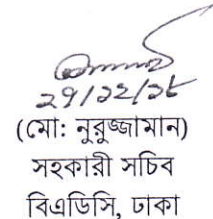 ২৭/১২/১৮
(মো: নুরুজ্জামান)
সহকারী সচিব
বিএডিসি, ঢাকা